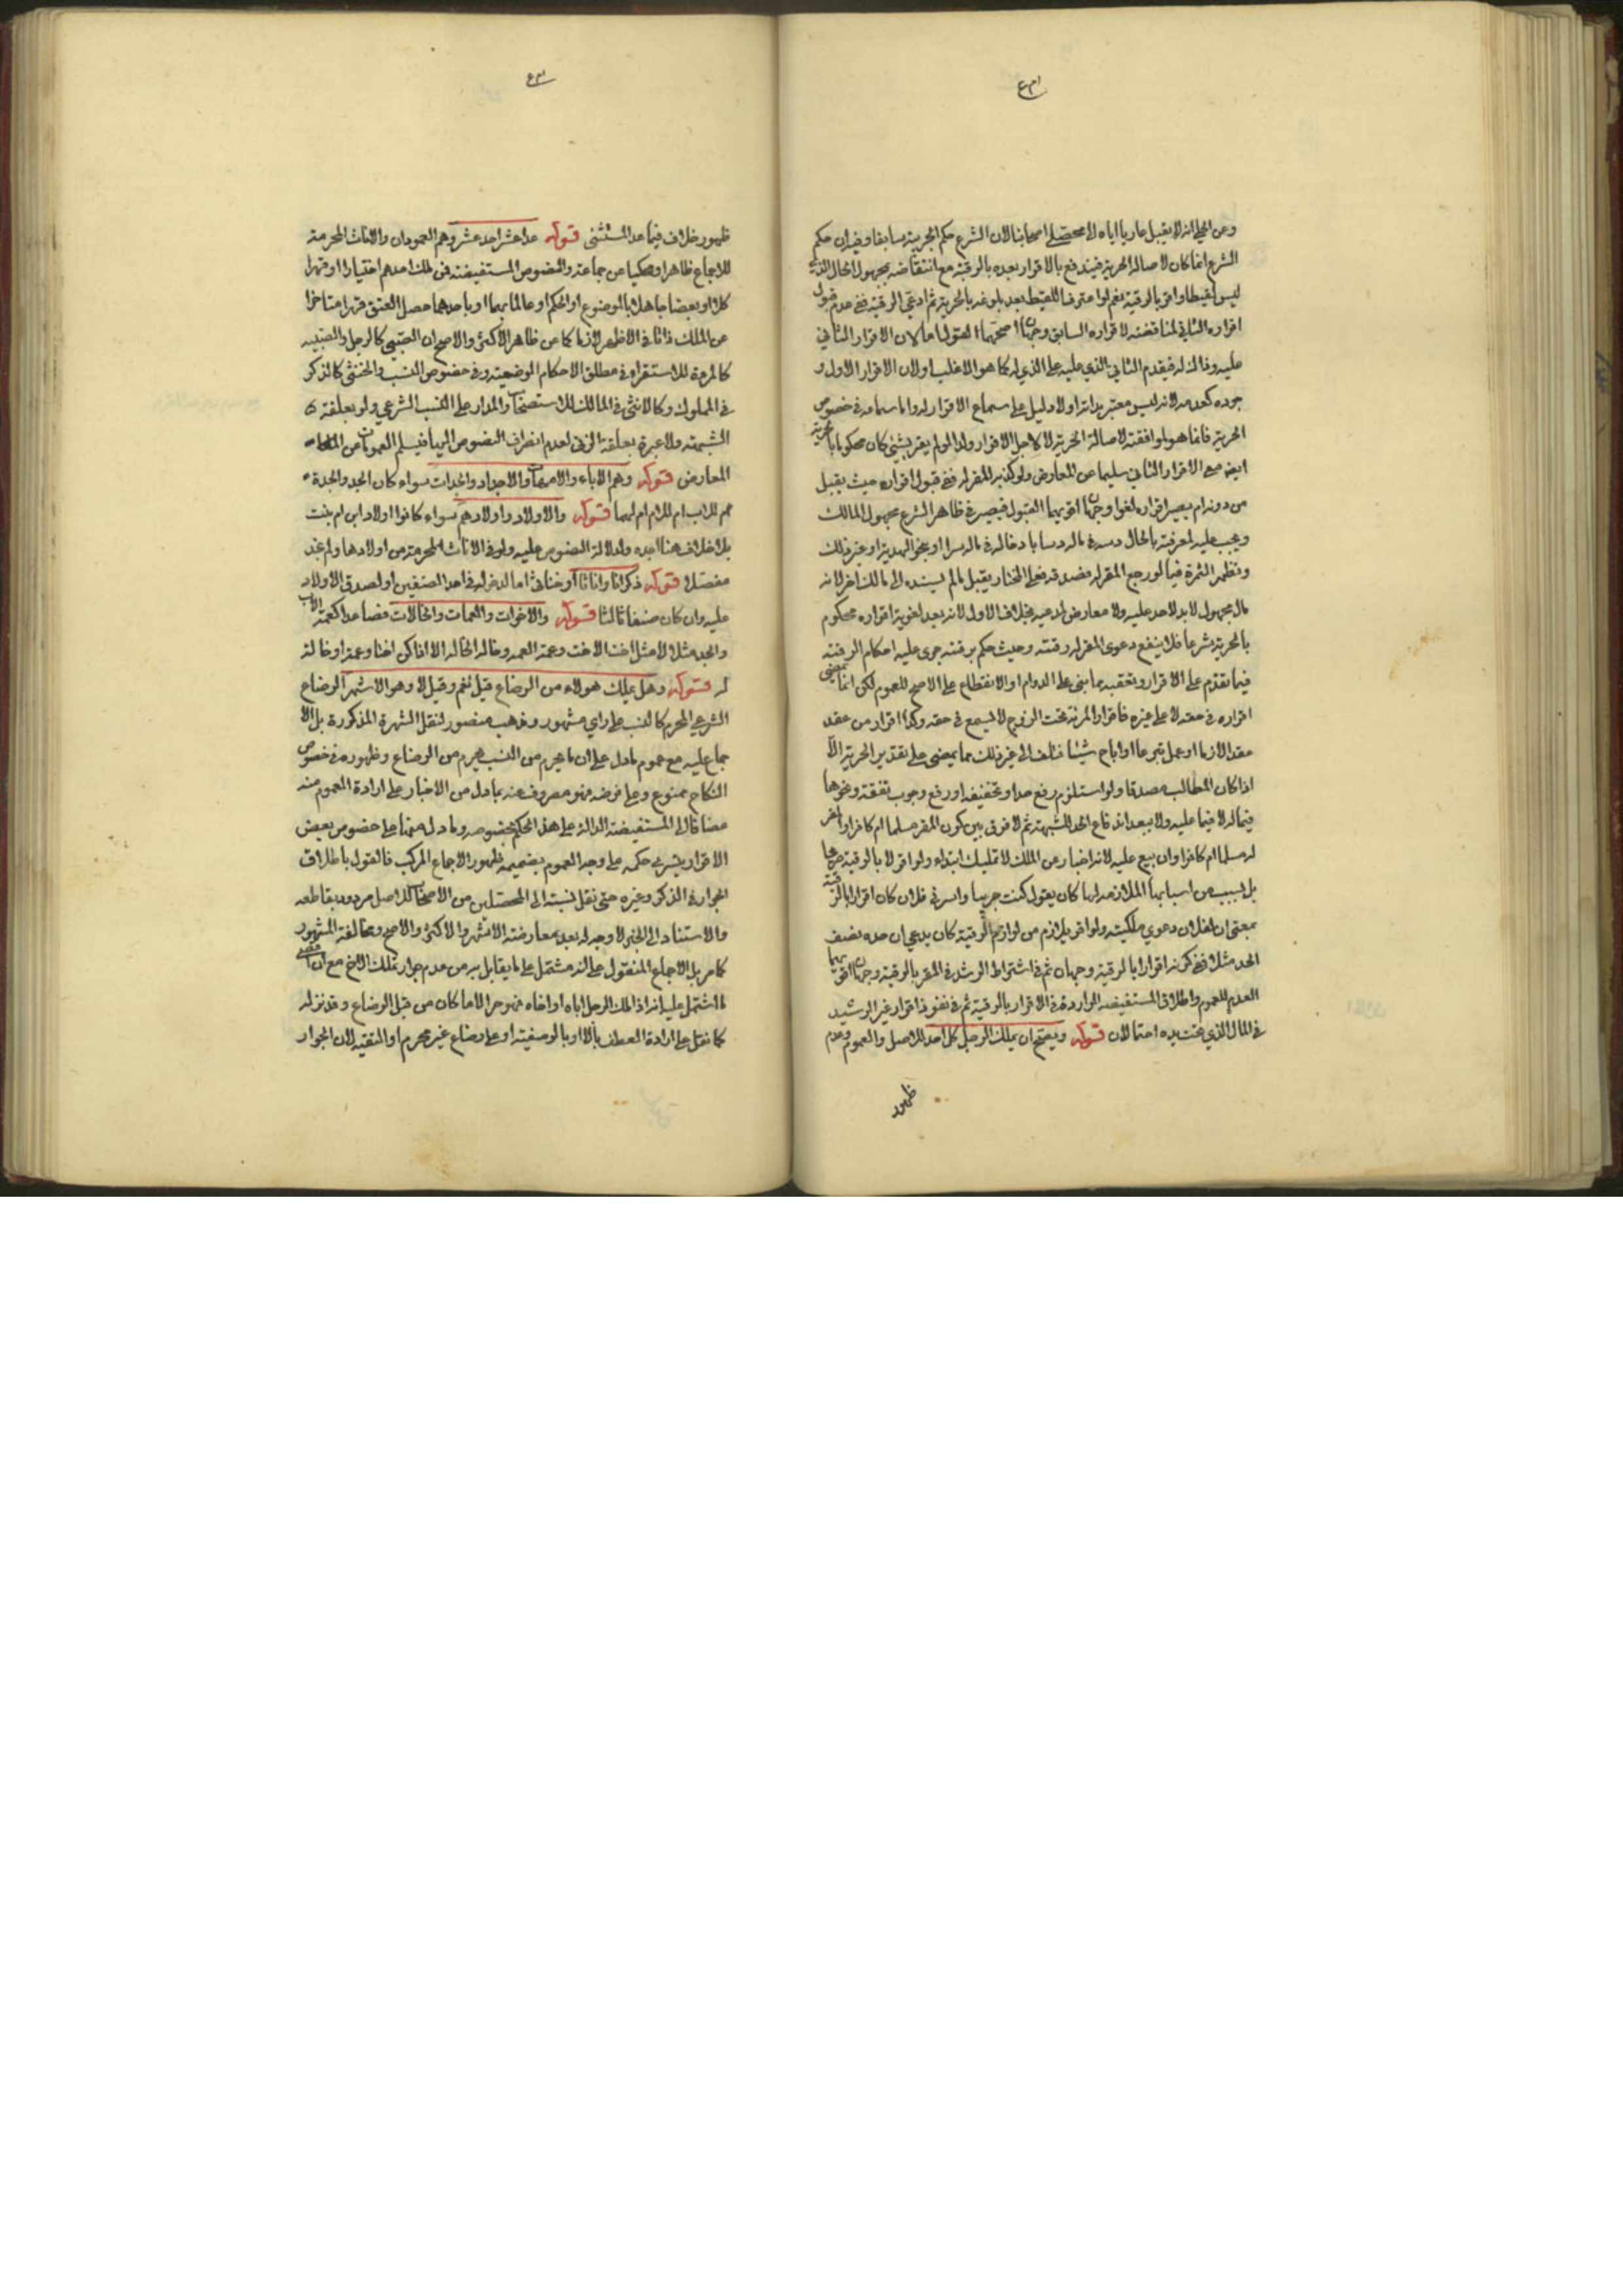 وعن الحلي انه لا يقبل عازيا اياه الى محصلي اصحابنا لان الشرع حكم الحرية سابقا وفيه ان حكم
الشرع انما كان لاصالة الحرية فيندفع بالاقرار بعده بالرقية مع انتقاضه بمجهول الحال الذي
ليس لقيطا واقر بالرقية نعم لو اعترف اللقيط بعد بلوغه بالحرية ثم ادعى الرقية ففي عدم قبول
اقراره الثاني لمناقضته لاقراره السابق وجهان اصحهما القبول اما لان الاقرار الثاني
عليه وذاك له فيقدم الثاني الذي عليه على الذي له كما هو الاغلب او لان الاقرار الاول و
جوده كعدمه لانه ليس معتبر بذاته اولا دليل على سماع الاقرار له واما سماعه في خصوص
الحرية فانما هو لموافقته لاصالة الحرية لا لاجل الاقرار ولذا لو لم يقر بشئ كان محكوما بالحرية
ايضا مع الاقرار الثاني سليما عن المعارض ولو كذبه المقر له ففي قبول اقراره حيث يقبل
من دونه ام يصير اقراره لغوا وجهان اقربهما القبول فيصير في ظاهر الشرع مجهول المالك
ويجب عليه لمعرفته بالحال دسه في ماله دسا بادخاله في ماله سرا او بنحو الهدية او غير ذلك
وتظهر الثمرة فيما لو رجع المقر له فصدقه فعلى المختار يقبل ما لم يسنده الى مالك اخر لانه
مال مجهول لا يد لاحد عليه ولا معارض لمدعيه بخلاف الاول لانه بعد لغوية اقراره محكوم
بالحرية شرعا فلا ينفع دعوى المقر له رقيته وحيث حكم برقيته جرى عليه احكام الرقية
فيما تقدم على الاقرار وتعقبه مما بنى على الدوام او الانقطاع على الاصح للعموم لكن انما يمضي
اقراره في حقه لا على غيره فاقرار المرئة تحت الزوج لا يسمع في حقه وكذا اقرار من عقد
عقدا لازما او عمل تبرعا او اباح شيئا فتلف الى غير ذلك مما يمضي على تقدير الحرية الا
اذا كان المطالب مصدقا ولو استلزم رفع حد او تخفيفه او رفع وجوب نفقة ونحوها
فيما له لا فيما عليه ولا يبعد اندفاع الحد للشبهة ثم لا فرق بين كون المقر مسلما ام كافرا والمقر
له مسلما ام كافرا وان بيع عليه لانه اخبار عن الملك لا تمليك ابتداء ولو اقر لا بالرقية صريحا
بل بسبب من اسبابها الملازمة لها كان يقول كنت حربيا واسرني فلان كان اقرارا بالرقية
بمعنى ان لفلان دعوى ملكيته ولو اقر بلازم من لوازم الرقية كان يدعي ان حده نصف
الحد مثلا ففي كونه اقرارا بالرقية وجهان ثم في اشتراط الرشد في المقر بالرقية وجهان اقويهما
العدم للعموم واطلاق المستفيضة الواردة في الاقرار بالرقية ثم في نفوذ اقرار غير الرشيد
في المال الذي تحت يده احتمالان قوله ويصح ان يملك الرجل كل احد للاصل والعموم وعدم
ظهور
ظهور خلاف فيما عدا المستثنى قوله عدا عشر احد عشر وهم العمودان والاناث المحرمة
للاجماع ظاهرا ومحكيا عن جماعة والنصوص المستفيضة فمن ملك احدهم اختيارا او قهرا
كلا او بعضا جاهلا بالموضوع او الحكم او عالما بهما او باحدهما حصل العتق قهرا متاخرا
عن الملك ذاتا في الاظهر لا زمانا كما عن ظاهر الاكثر والاصح ان الصبي كالرجل والصبية
كالمرءة للاستقراء في مطلق الاحكام الوضعية وفي خصوص النسب والخنثى كالذكر
في المملوك وكالانثى في المالك للاستصحاب والمدار على النسب الشرعي ولو بعلقة
الشبهة ولا عبرة بعلقة الزنى لعدم انصراف النصوص اليها فيسلم العمومات عن
المعارض قوله وهم الاباء والامهات والاجداد والجدات سواء كان الجد والجدة
هم للاب ام للام ام لهما قوله والاولاد واولادهم سواء كانوا اولاد ابن ام بنت
بلا خلاف هنا اجده ولدلالة النصوص عليه ولو في الاناث المحرمة من اولادها ولم نجد
مفصلا قوله ذكرانا واناثا او خناثى اما لدخوله في احد الصنفين او لصدق الاولاد
عليه وان كان صنفا ثالثا قوله والاخوات والعمات والخالات فصاعدا كعمة الاب
والجد مثلا لا مثل اخت الاخت وعمة العمة وخالة الخالة الا اذا كن اختا وعمة او خالة
له قوله وهل يملك هولاء من الرضاع قيل نعم وقيل لا وهو الاشهر الرضاع
الشرعي المحرم كالنسب على راي مشهور ومذهب منصور لنقل الشهرة المذكورة بل الا
جماع عليه مع عموم ما دل على ان ما يحرم من النسب يحرم من الرضاع وظهوره في خصوص
النكاح ممنوع وعلى فرضه فهو مصروف عنه بما دل من الاخبار على ارادة العموم منه
مضافا الى المستفيضة الدالة على هذا الحكم بخصوصه وما دل منها على خصوص بعض
الاقرار يسري حكمه على وجه العموم بضميمة ظهور الاجماع المركب فالقول باطلاق
الجواز في الذكر وغيره حتى نقل نسبته الى المحصلين من الاصحاب للاصل مردود بقاطعه
والاستناد الى الخبر لا وجه له بعد معارضته الاشهر والاكثر والاصح ومخالفة المشهور
كما مر بل الاجماع المنقول على انه مشتمل على ما يقابل به من عدم جواز تملك الاخ مع ان
ما اشتمل عليه انه اذا ملك الرجل اباه او اخاه فهو حر الا ما كان من قبل الرضاع وقد نزله
كما نقل على ارادة العطف بالا او بالوصفية او على رضاع غير محرم او التقية لان الجواز